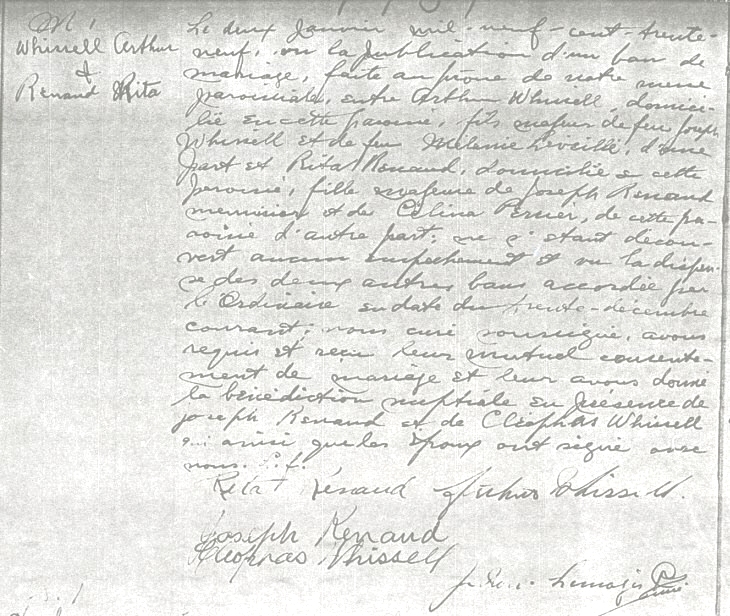 M.
Whissell Arthur
&
Renaud Rita
Le deux Janvier mil-neuf-cent-trente-
neuf, vu la publication d'un ban de
mariage, faite au prône de notre messe
paroissiale, entre Arthur Whissell, domici-
lié en cette paroisse, fils majeur de feu Joseph
Whissell et de feu Mélénie Léveillé, d'une
part et Rita Renaud, domiciliée en cette
paroisse, fille majeure de Joseph Renaud
menuisier et de Célina Perrier, de cette pa-
roisse d'autre part; ne s'étant décou-
vert aucun empêchement et vu la dispen-
se des deux autres bans accordée par
l'Ordinaire en date du trente-décembre
courant; nous curé soussigné, avons
requis et reçu leur mutuel consente-
ment de mariage et leur avons donné
la bénédiction nuptiale en présence de
joseph Renaud et de Cléophas Whissell
qui ainsi que les époux ont signé avec
nous.
Rita Renaud Arthur Whissell.
Joseph Renaud
Cleophas Whissell
Ptre